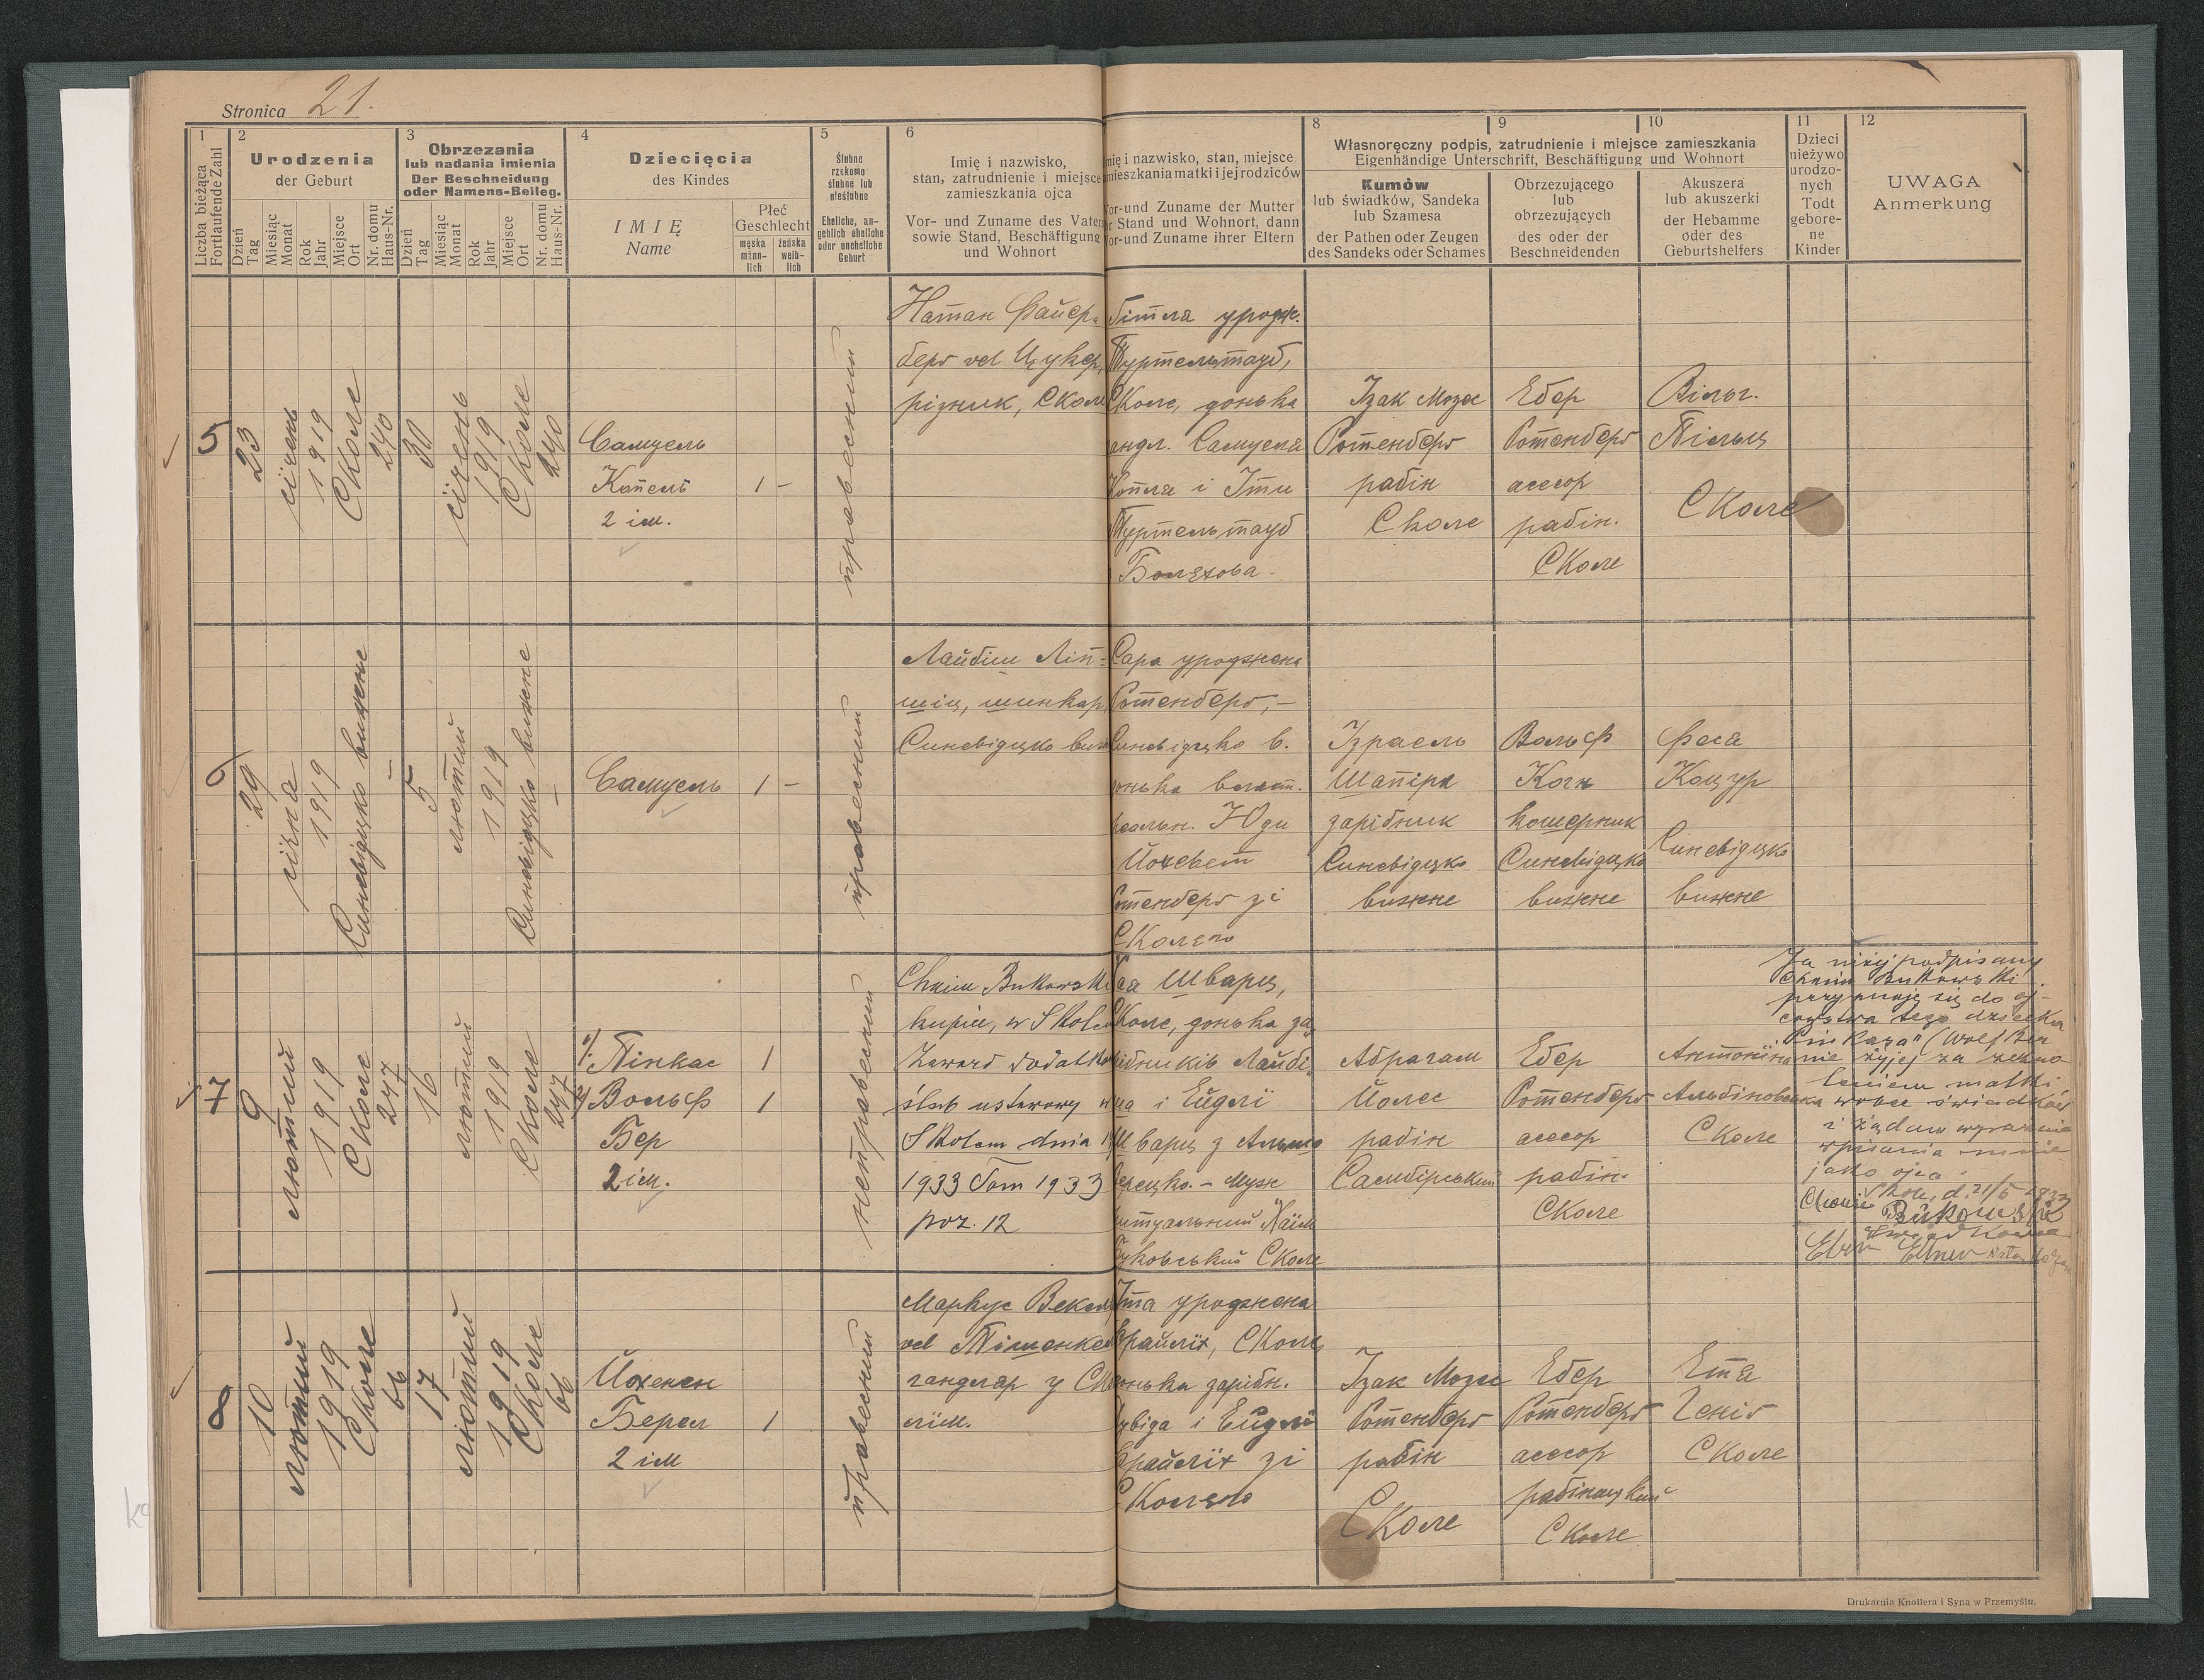 Stronica 21.
1
Liczba bieżąca
Fortlaufende Zahl
2
Urodzenia
der Geburt
Dzień
Tag
Miesiąc
Monat
Rok
Jahr
Miejsce
Ort
Nr. domu
Haus-Nr.
3
Obrzezania
lub nadania imienia
Der Beschneidung
oder Namens-Beileg.
Dzień
Tag
Miesiąc
Monat
Rok
Jahr
Miejsce
Ort
Nr. domu
Haus-Nr.
4
Dziecięcia
des Kindes
IMIĘ
Name
Płeć
Geschlecht
męska
männ-
lich
żeńska
weib-
lich
5
Ślubne
rzekomo
ślubne lub
nieślubne
Eheliche, an-
geblich eheliche
oder uneheliche
Geburt
6
Imię i nazwisko,
stan, zatrudnienie i miejsce
zamieszkania ojca
Vor- und Zuname des Vaters
sowie Stand, Beschäftigung
und Wohnort
mię i nazwisko, stan, miejsce
mieszkania matki i jej rodziców
Vor-und Zuname der Mutter
r Stand und Wohnort, dann
Vor-und Zuname ihrer Eltern
8
9
10
Własnoręczny podpis, zatrudnienie i miejsce zamieszkania
Eigenhändige Unterschrift, Beschäftigung und Wohnort
Kumów
lub świadków, Sandeka
lub Szamesa
der Pathen oder Zeugen
des Sandeks oder Schames
Obrzezującego
lub
obrzezujących
des oder der
Beschneidenden
Akuszera
lub akuszerki
der Hebamme
oder des
Geburtshelfers
11
Dzieci
nieżywo
urodzo-
nych
Todt
gebore-
ne
Kinder
12
UWAGA
Anmerkung
5
23
січень
1919
Сколе
240
30
січень
1919
Сколе
240
Самуель
Копель
2 ім.
1 -
правесний
Натан Файер-
берґ vel Цукер,
різник, Сколе
Ґітля уродж.
Туртельтауб,
Сколе, донька
андл. Самуеля
Копля і Іти
Туртельтауб
Болехова.
Ізак Мозес
Ротенберґ
рабін
Сколе
Ебер
Ротенберґ
асесор
рабін.
Сколе
Вільг.
Пільц
Сколе
6
29
січня
1919
Синевідцко вижне
-
5
лютий
1919
Синевідцко вижне
-
Самуель
1 -
правесний
Лайбіш Ліп=
шіц, шинкар,
Синевідцко виж
Сара уроджена
Ротенберґ, -
Синевідцко в.
онька власт.
реальн. Юди
Йохевет
отенберґ зі
Сколего
Ізраель
Шапіра
зарібник
Синевідцко
вижне
Вольф
Когн
кошерник
Синевідцко
вижне
Феса
Коцур
Синевідцко
вижне
7
9
лютий
1919
Сколе
247
16
лютий
1919
Сколе
247
1/. Пінкас 1
2/ Вольф 1
Бер
2 ім.
неправесний
Chaim Bukowski
kupiec, w Skolem
Zawarł dodatko
ślub ustawowy w
Skolem dnia
1933 Tom 1933
poz. 12
са Шварц,
Сколе, донька за
рібників Лайбі-
ша і Ейдлі
Шварц з
Муж
ритуальний Хаїм
Буковський Сколе
Абрагам
Йолес
рабін
Самбірський
Ебер
Ротенберґ
асесор
рабін.
Сколе
Антоніна
Альбіновська
Сколе
Ja niżej podpisany
Chaim Bukowski
przyznaję się do oj-
costwa tego dziecka
Pinkasa" (Wolf Ber
nie żyje) za zezwo
leniem matki
wobec świadków
i żądam wyraźnie
wpisania mnie
jako ojca.
Skole, d. 21/5 1933
Chaim Bukowski
Świadkowie
8
10
лютий
1919
Сколе
66
17
лютий
1919
Сколе
66
Йохенен
Берел
2 ім
1
правесний
Маркус Векслер
vel
гандляр у Ско
лім.
Іта уроджена
Фрайліх, Сколе
онька зарібн.
Давіда і Ейдлі
Фрайліх зі
Сколего
Ізак Мозес
Ротенберґ
рабін
Сколе
Ебер
Ротенберґ
асесор
рабінацкий
Сколе
Ета
Геніґ
Сколе
Drukarnia Knollera i Syna w Przemyślu.